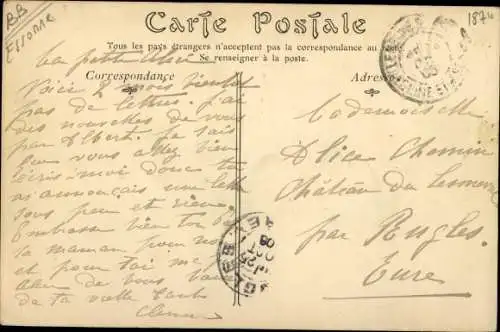 BB
ESSONNE
1874
Carte Postale
Tous les pays étrangers n'acceptent pas la correspondance au
Se renseigner à la poste.
Correspondance
Adresse
Ma petite Alice
Voici 2 mois bientôt
pas de lettres. J'ai
des nouvelles de vous
par Albert. Je sais
que vous allez bien
écris-moi donc tu
m'annonçais une lettre
sous peu et rien.
Embrasse bien ton
ta maman pour nous
et pour toi
de vous
de ta vieille tante
Mademoiselle
Alice Chemin
Château du
par Rugles
Eure